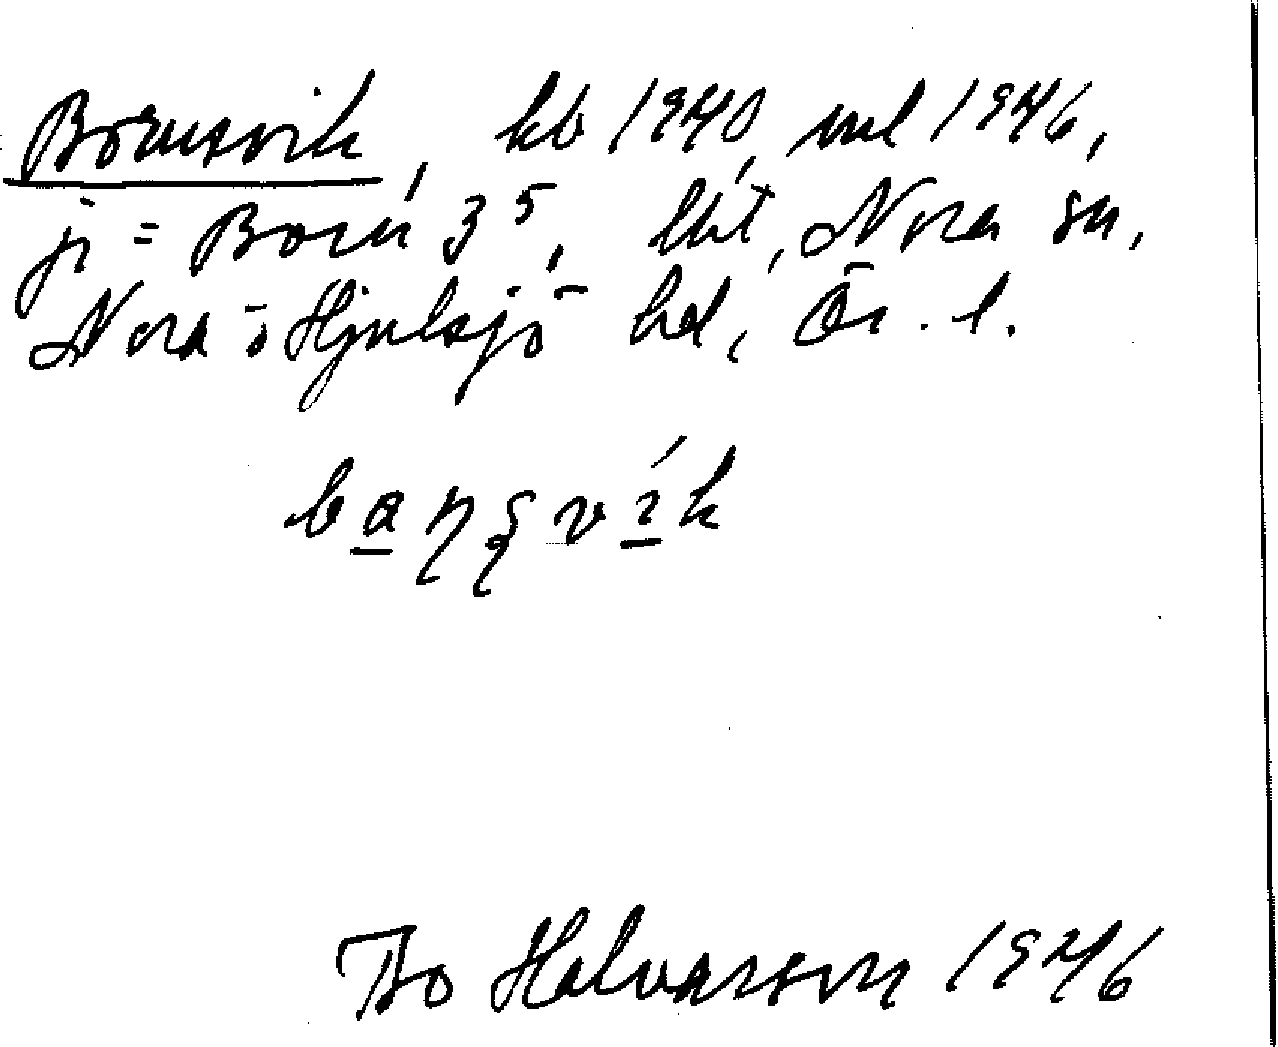 Börnsvik, kb 1940, uml 1946,
ji = Born 3⁵, lht, Nora sn,
Nora o Hjulsjö hd, Ör. l.
Bo Halvarson 1946